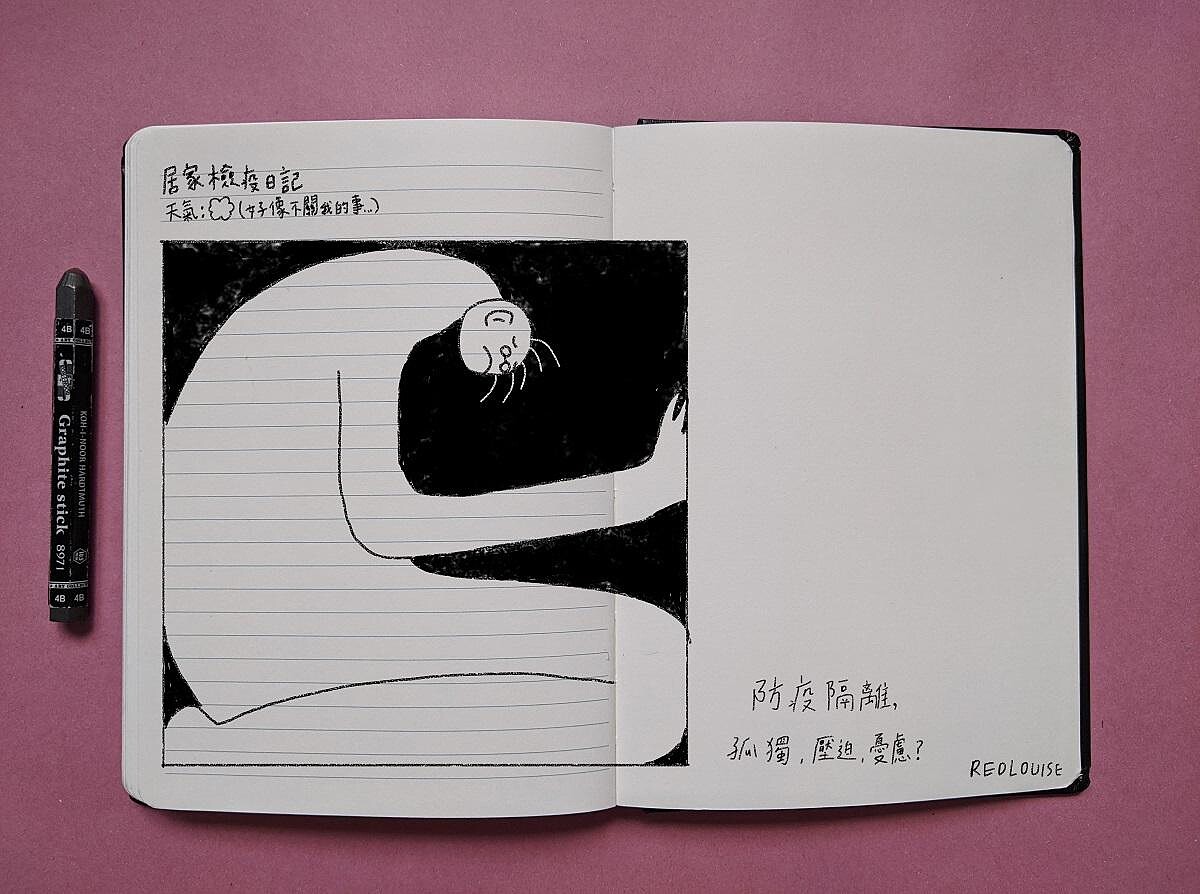 居家檢疫日記
天氣：(好像不關我的事...)
防疫隔離,
孤獨,壓迫,憂慮?
REDLOUISE
4B 4B
KOH-I-NOOR HARDTMUTH
Graphite stick 8971
4B 4B